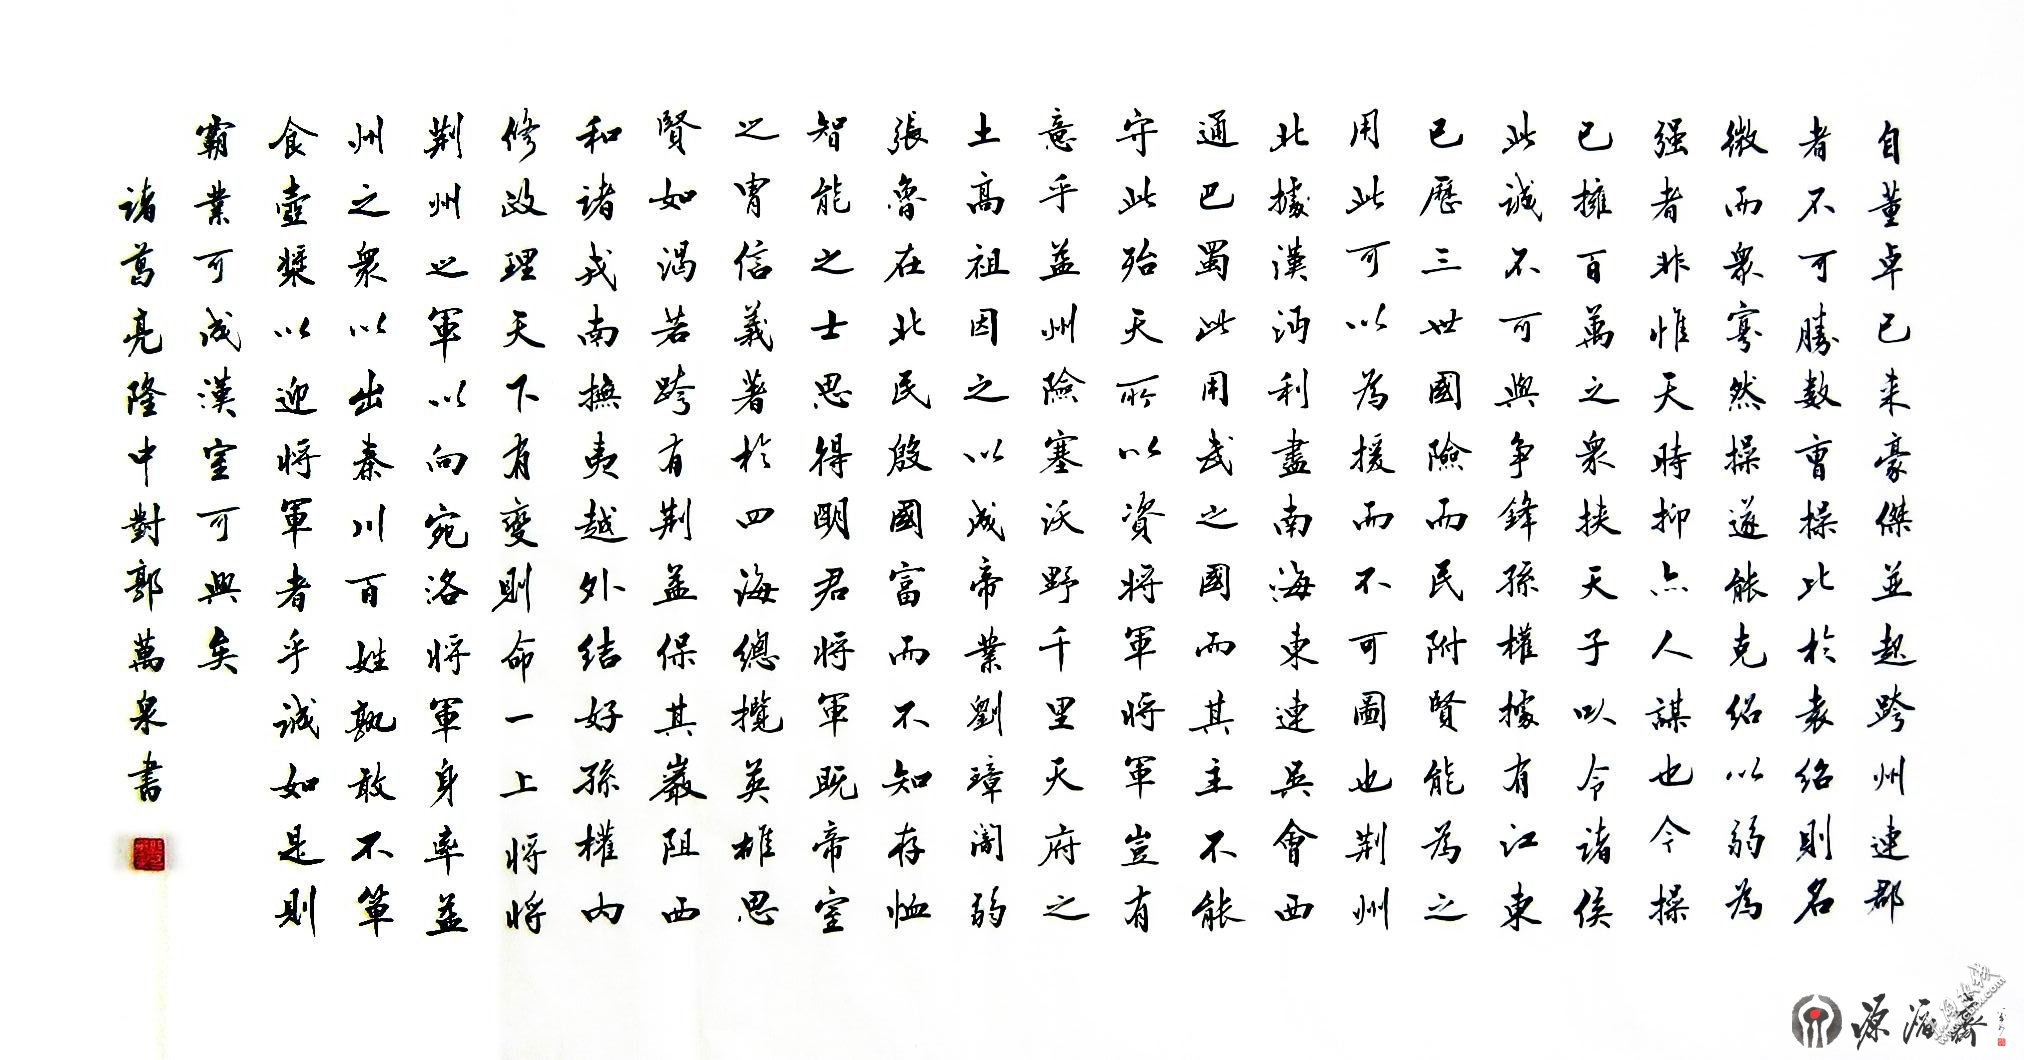 自董卓已来豪傑並起跨州連郡
者不可勝数曹操比於袁紹則名
微而衆寡然操遂能克紹以弱為
强者非惟天時抑亦人謀也今操
已擁百萬之衆挟天子以令諸侯
此誠不可與争鋒孫權據有江東
已歷三世國險而民附賢能為之
用此可以為援而不可圖也荆州
北據漢沔利盡南海東連吴會西
通巴蜀此用武之國而其主不能
守此殆天所以資将軍将軍豈有
意乎益州險塞沃野千里天府之
土高祖因之以成帝業劉璋闇弱
張魯在北民殷國富而不知存恤
智能之士思得明君将軍既帝室
之胄信義著於四海總攬英雄思
賢如渴若跨有荆益保其巖阻西
和諸戎南撫夷越外结好孫權内
修政理天下有變則命一上将将
荆州之軍以向宛洛将軍身率益
州之衆以出秦川百姓孰敢不簞
食壺漿以迎将軍者乎誠如是則
霸業可成漢室可興矣
諸葛亮隆中對郭萬泉書